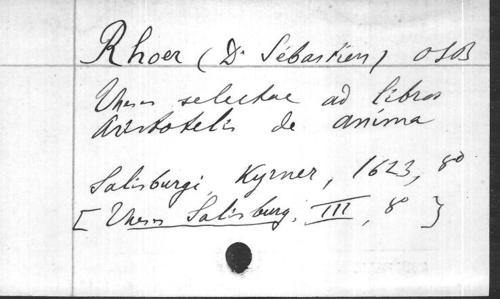 Rhoer (Dr Sébastien) OSB
Theses selectae ad libros
Aristotelis de anima
Salisburgi, Kyrner, 1623, 8°
[Theses Salisburg, III, 8 ]